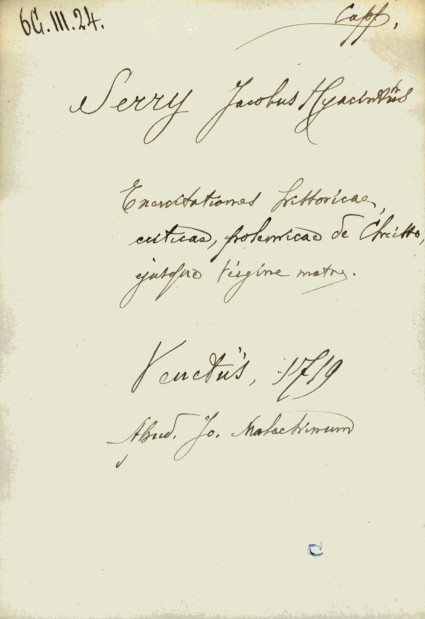 6G.III.24.
Capf.
Serry Jacobus Hyacinthus
Exercitationes historicae,
criticae, polemicae de Christo,
ejusque Virgine matre.
Venetiis, 1719
Apud. Jo. Malachinum
C